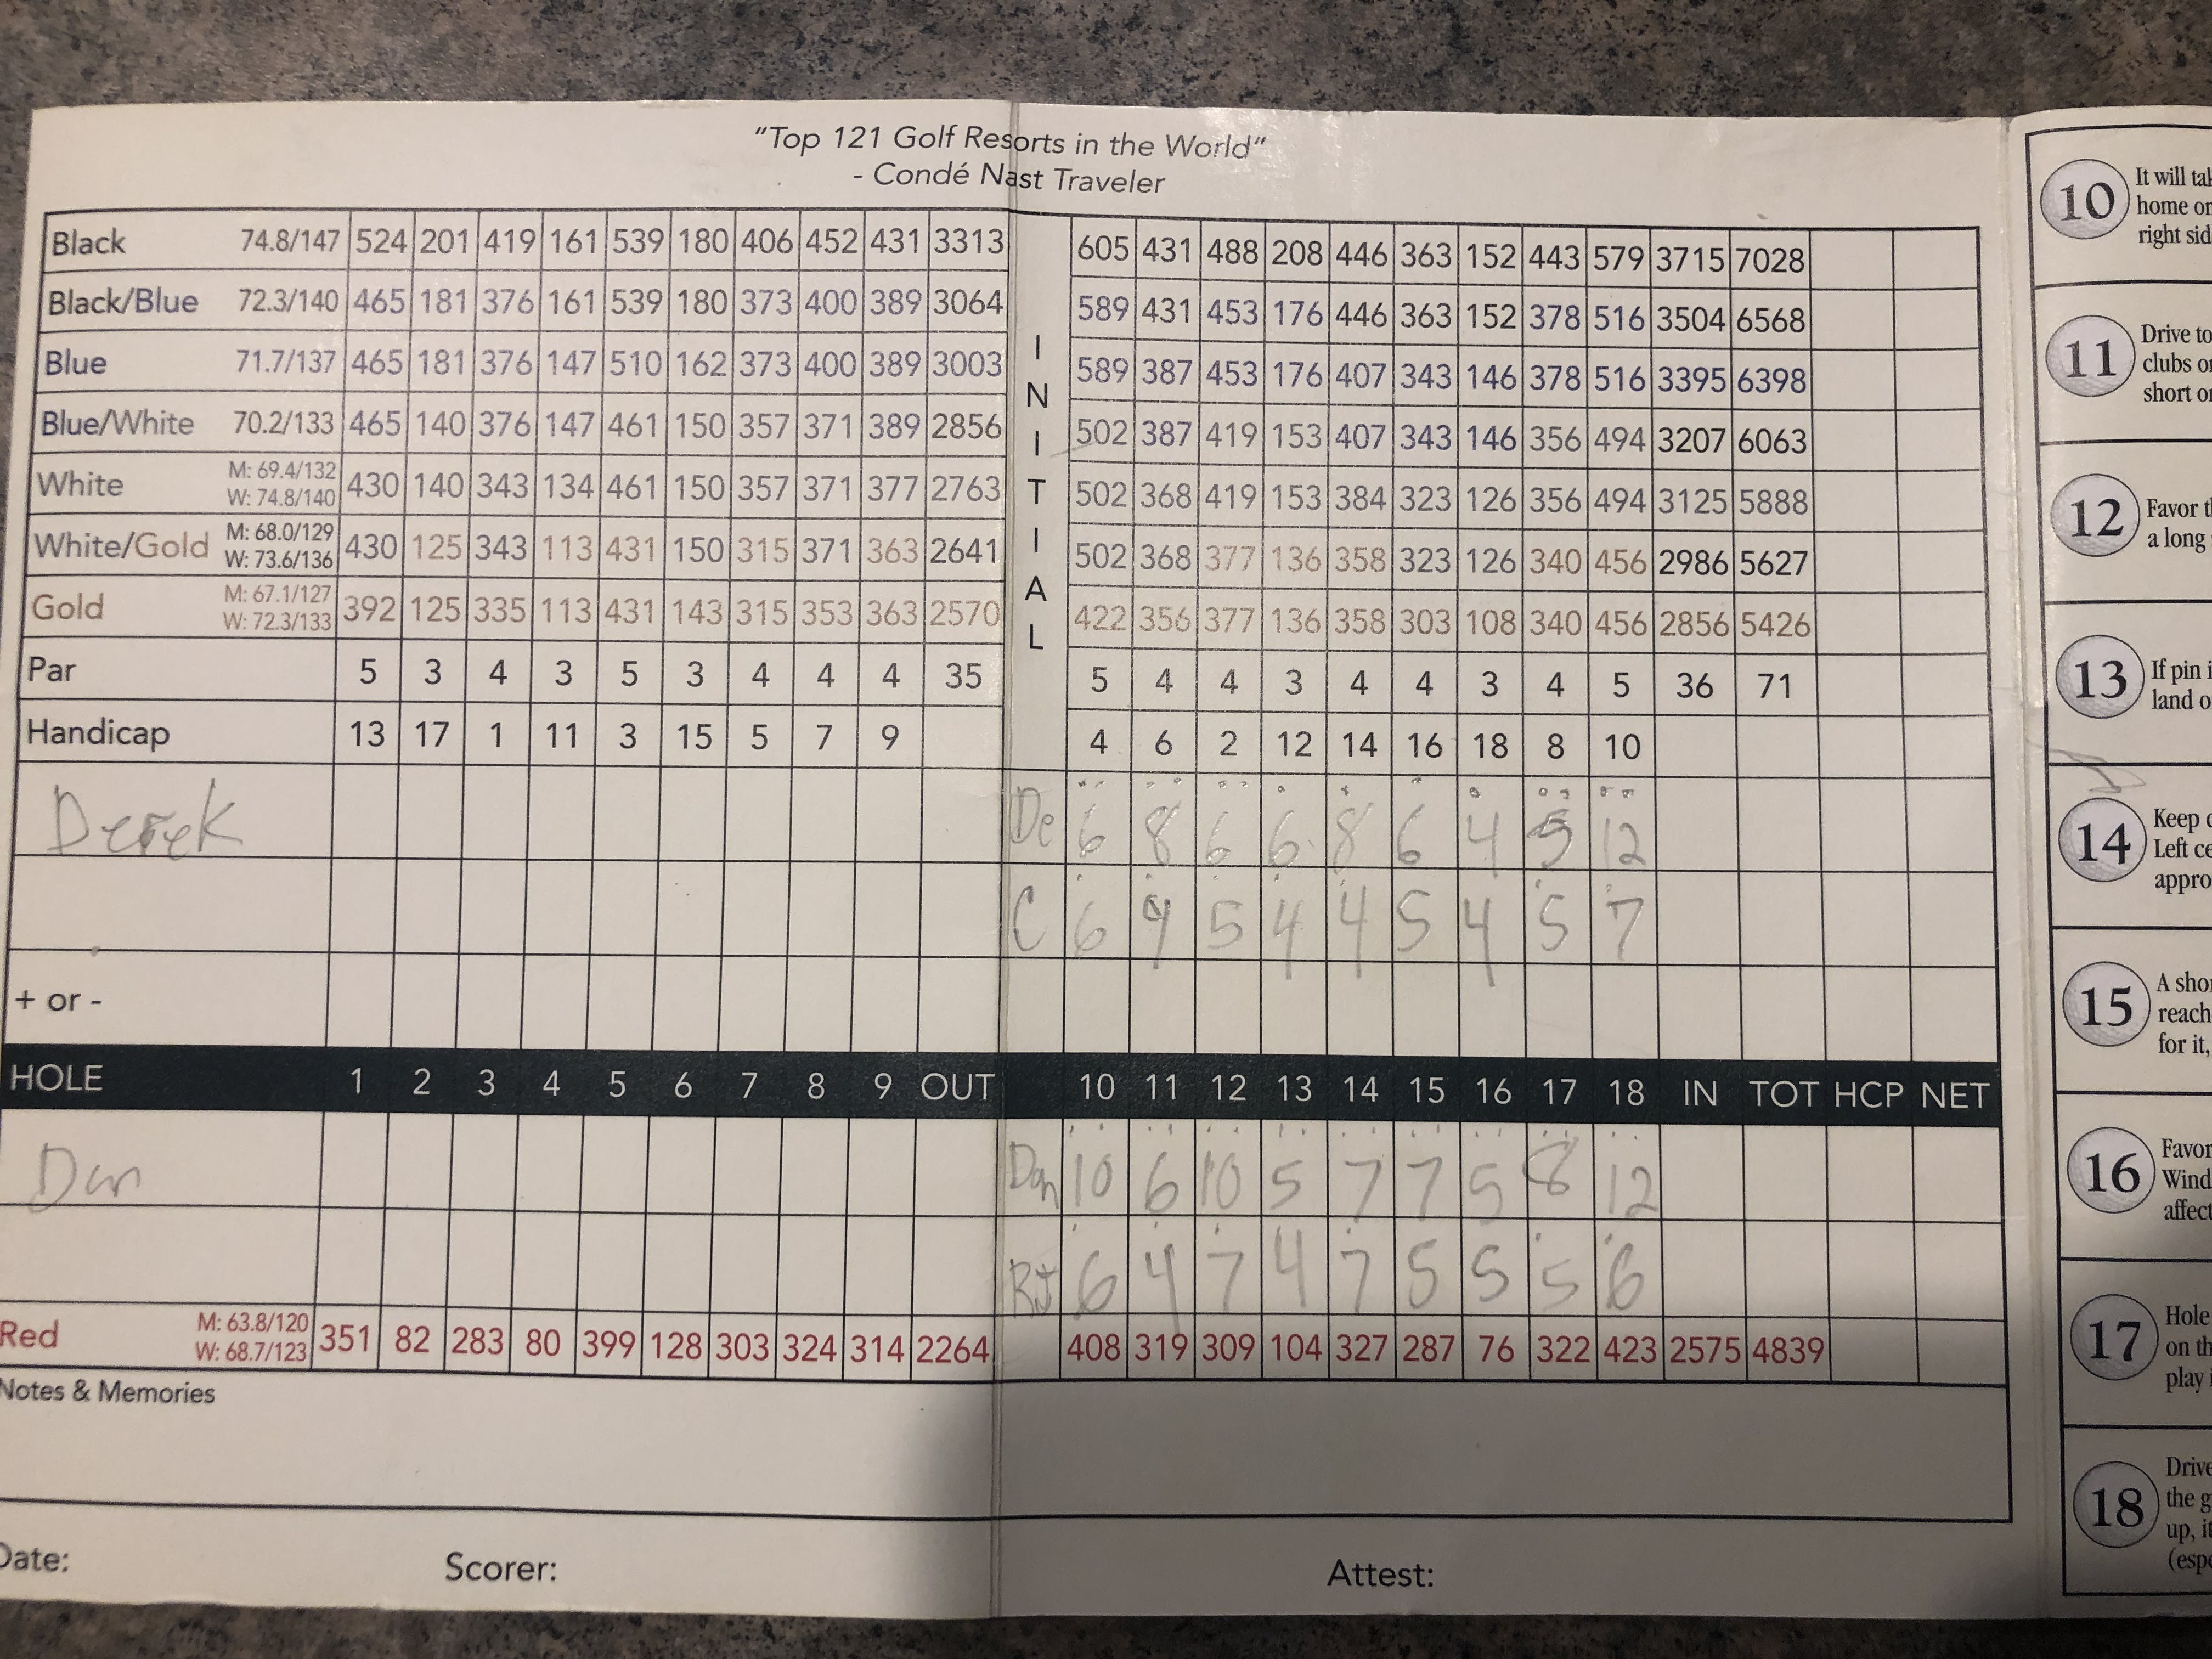 "Top 121 Golf Resorts in the World"
- Condé Nast Traveler
Black 74.8/147 524 201 419 161 539 180 406 452 431 3313 605 431 488 208 446 363 152 443 579 3715 7028
Black/Blue 72.3/140 465 181 376 161 539 180 373 400 389 3064 589 431 453 176 446 363 152 378 516 3504 6568
Blue 71.7/137 465 181 376 147 510 162 373 400 389 3003 589 387 453 176 407 343 146 378 516 3395 6398
Blue/White 70.2/133 465 140 376 147 461 150 357 371 389 2856 502 387 419 153 407 343 146 356 494 3207 6063
White M: 69.4/132 W: 74.8/140 430 140 343 134 461 150 357 371 377 2763 502 368 419 153 384 323 126 356 494 3125 5888
White/Gold M: 68.0/129 W: 73.6/136 430 125 343 113 431 150 315 371 363 2641 502 368 377 136 358 323 126 340 456 2986 5627
Gold M: 67.1/127 W: 72.3/133 392 125 335 113 431 143 315 353 363 2570 422 356 377 136 358 303 108 340 456 2856 5426
INITIAL
Par 5 3 4 3 5 3 4 4 4 35 5 4 4 3 4 4 3 4 5 36 71
Handicap 13 17 1 11 3 15 5 7 9 4 6 2 12 14 16 18 8 10
Derek De 6 8 6 6 8 6 4 5 12
C 6 4 5 4 4 5 4 5 7
+ or -
HOLE 1 2 3 4 5 6 7 8 9 OUT 10 11 12 13 14 15 16 17 18 IN TOT HCP NET
Dan Dan 10 6 10 5 7 7 5 8 12
RJ 6 4 7 4 7 5 5 5 6
Red M: 63.8/120 W: 68.7/123 351 82 283 80 399 128 303 324 314 2264 408 319 309 104 327 287 76 322 423 2575 4839
Notes & Memories
Date: Scorer: Attest:
10 It will
home
right
11 Drive to
clubs
short
12 Favor
a long
13 If pin
land
14 Keep
Left
15 A
reach
for it,
16 Favor
Wind
affect
17 Hole
on
play
18 Drive
the
up,